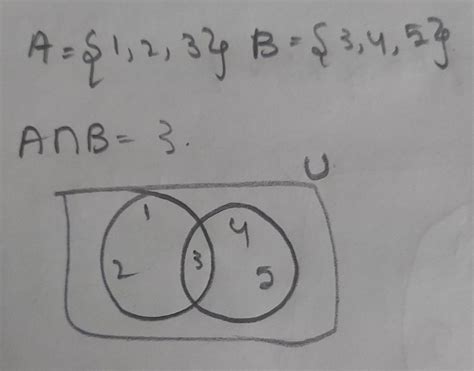 A = {1, 2, 3} B = {3, 4, 5}
A∩B = 3.
U
1
4
2
3
5